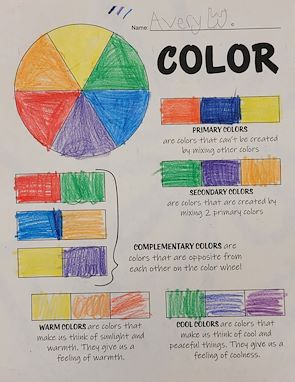 Name: Avery W.
COLOR
PRIMARY COLORS
are colors that can't be created
by mixing other colors
SECONDARY COLORS
are colors that are created by
mixing 2 primary colors
COMPLEMENTARY COLORS are
colors that are opposite from
each other on the color wheel
WARM COLORS are colors that
make us think of sunlight and
warmth. They give us a
feeling of warmth.
COOL COLORS are colors that
make us think of cool and
peaceful things. They give us a
feeling of coolness.